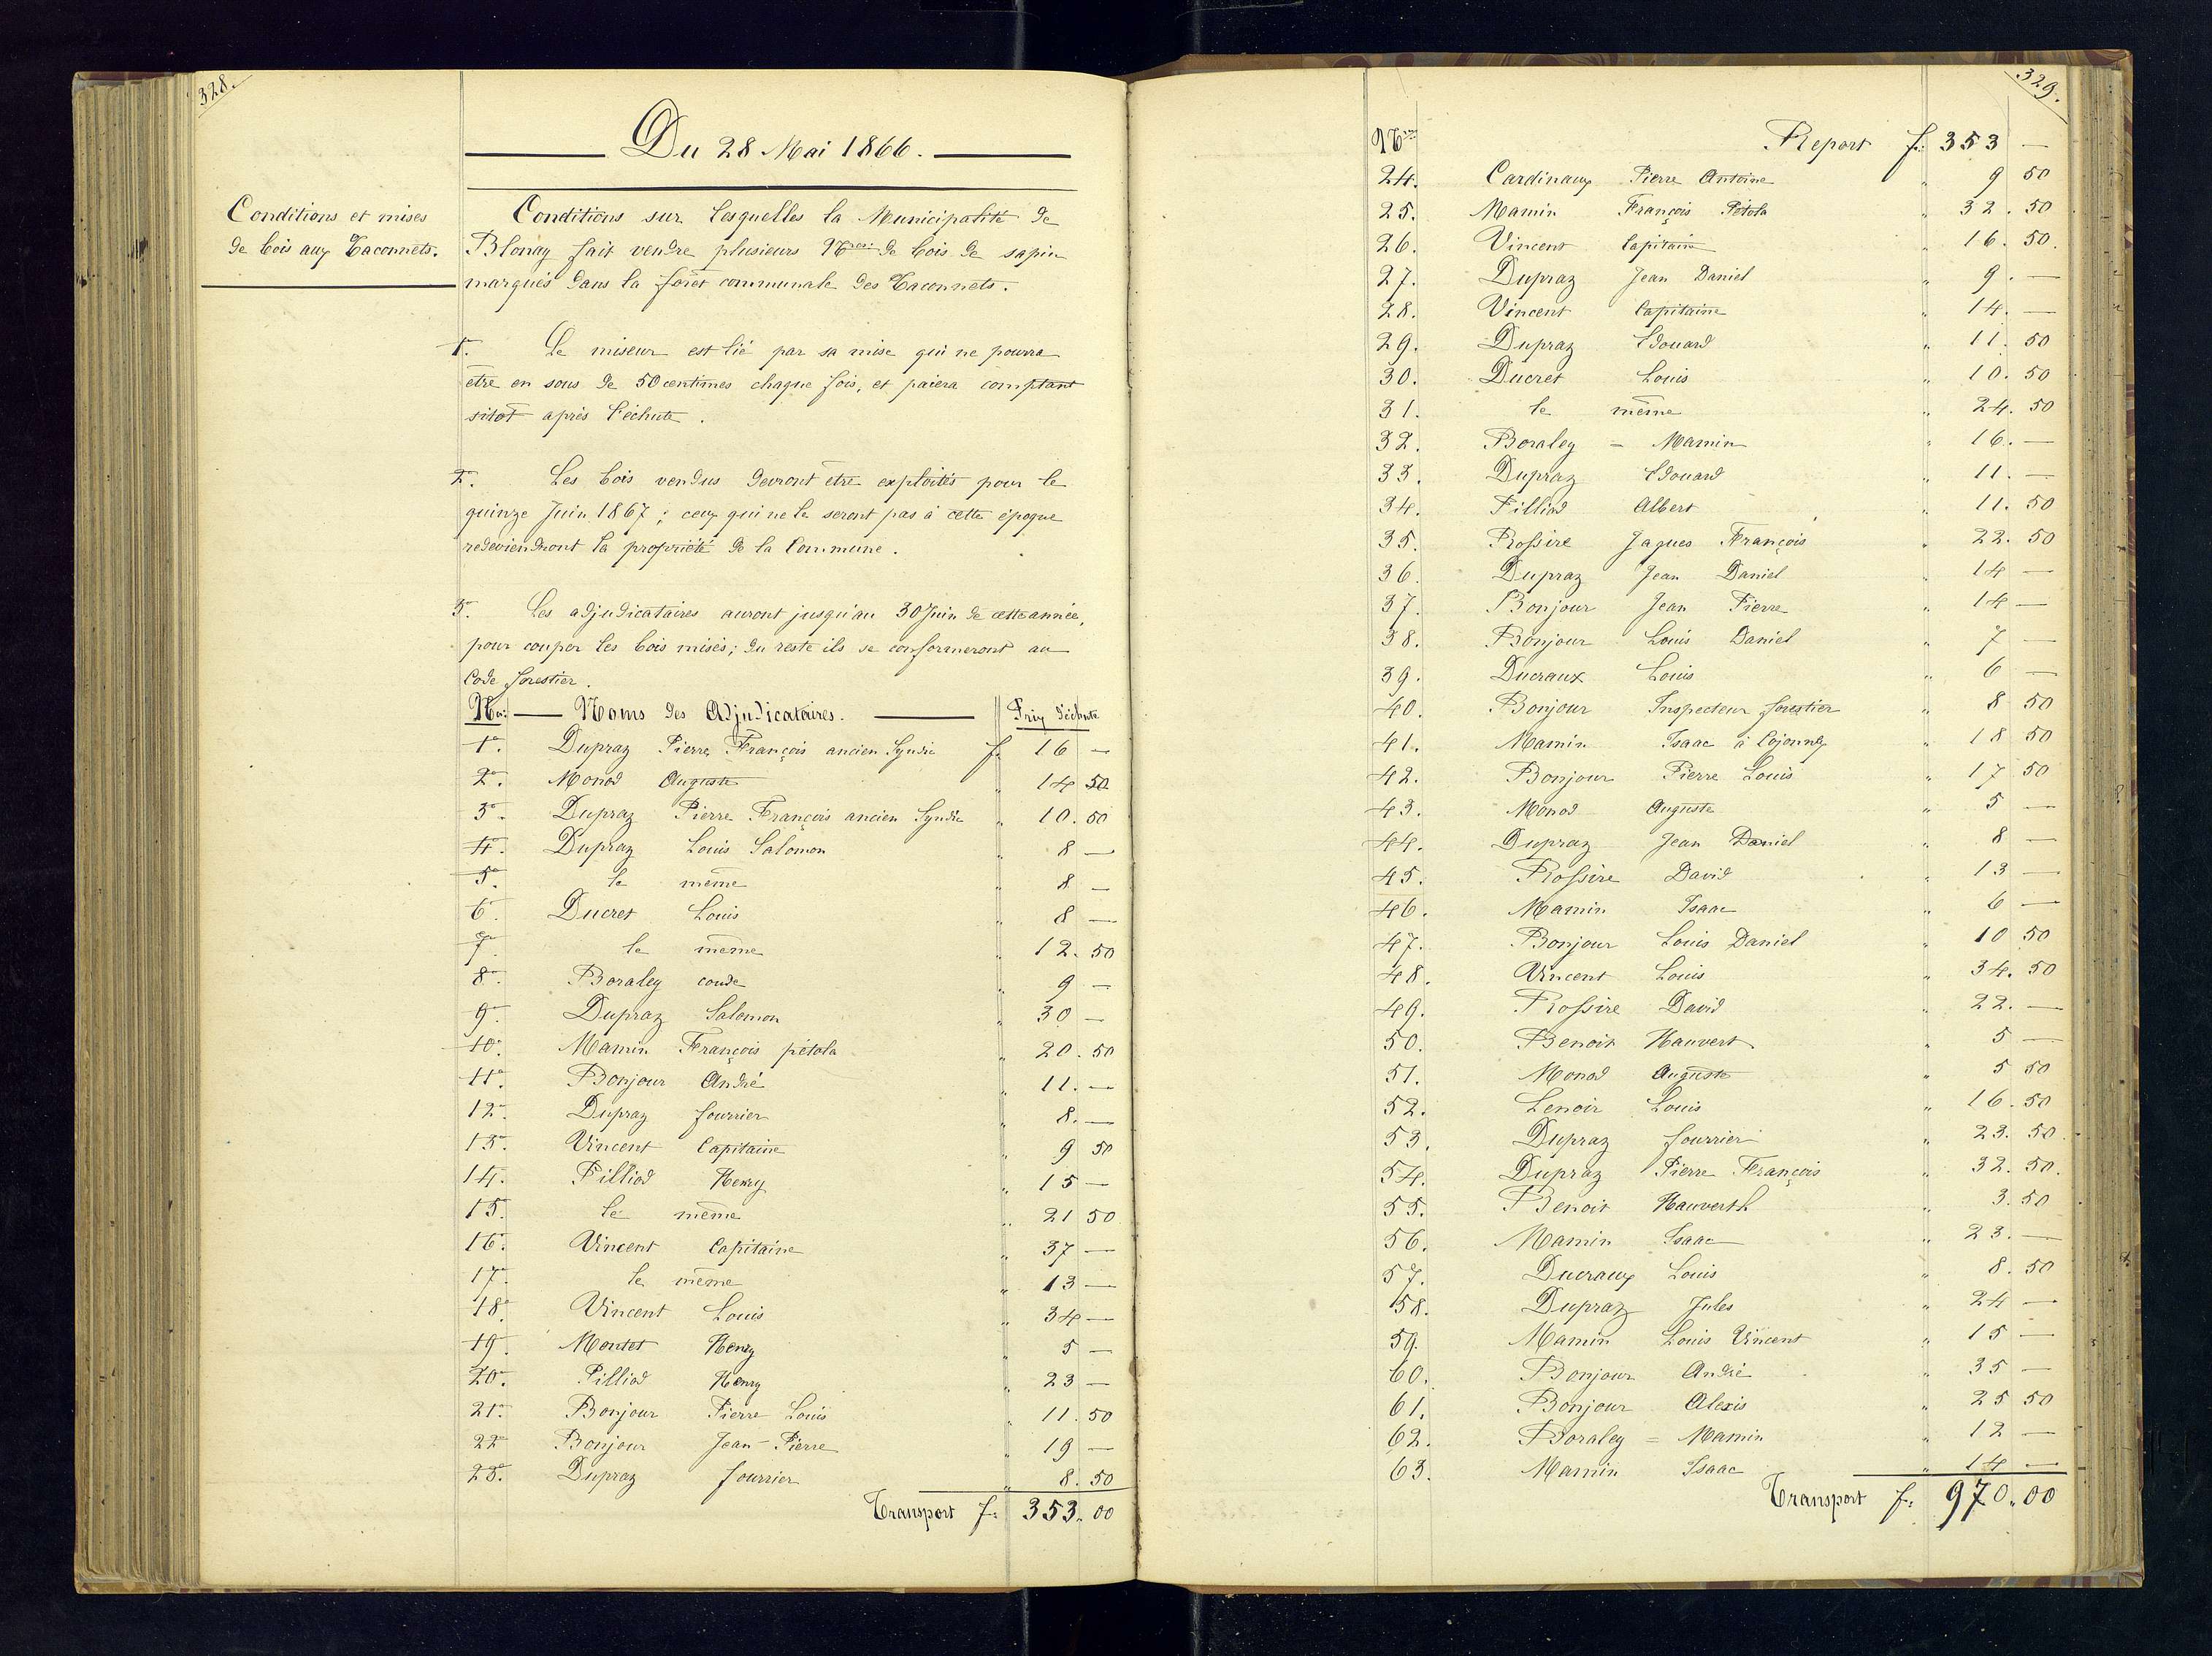 328.
Du 28 Mai 1866.
Conditions et mises
de bois aux Taconnets.
Conditions sur lesquelles la Municipalité de
Blonay fait vendre plusieurs Nros de bois de sapin
marqués dans la forêt communale des Taconnets.
1°. Le miseur est lié par sa mise qui ne pourra
être en sous de 50 centimes chaque fois, et paiera comptant
sitôt après l'échute.
2°. Les bois vendus devront être exploités pour le
quinze Juin 1867; ceux qui ne le seront pas à cette époque
redeviendront la propriété de la Commune.
3°. Les adjudicataires auront jusqu'au 30 Juin de cette année,
pour couper les bois misés; du reste ils se conformeront au
Code forestier.
Nos. — Noms des Adjudicataires. — Prix d'échute
1°. Dupraz Pierre François ancien Syndic f. 16 —
2°. Monod Auguste " 14 50
3°. Dupraz Pierre François ancien Syndic " 10. 50
4°. Dupraz Louis Salomon " 8 —
5°. le même " 8 —
6°. Ducret Louis " 8 —
7°. le même " 12. 50
8°. Boraley conde " 9 —
9°. Dupraz Salomon " 30 —
10°. Mamin François pétola " 20. 50
11°. Bonjour André " 11. —
12°. Dupraz fourrier " 8. —
13°. Vincent Capitaine " 9 50
14°. Pilliod Henry " 15 —
15°. le même " 21 50
16°. Vincent Capitaine " 37 —
17°. le même " 13 —
18°. Vincent Louis " 34 —
19°. Montet Henry " 5 —
20°. Pilliod Henry " 23 —
21°. Bonjour Pierre Louis " 11. 50
22° Bonjour Jean-Pierre " 19 —
23°. Dupraz fourrier " 8. 50
Transport f. 353. 00
329.
Nros Report f. 353 —
24. Cardinaux Pierre Antoine " 9 50
25. Mamin François Pétola " 32. 50
26. Vincent Capitaine " 16. 50.
27. Dupraz Jean Daniel " 9. —
28. Vincent Capitaine " 14. —
29. Dupraz Edouard " 11. 50
30. Ducret Louis " 10. 50
31. le même " 24. 50
32. Boraley = Mamin " 16. —
33. Dupraz Edouard " 11. —
34. Pilliod Albert " 11. 50
35. Rossire Jaques François " 22. 50
36. Dupraz Jean Daniel " 14 —
37. Bonjour Jean Pierre " 14 —
38. Bonjour Louis Daniel " 7 —
39. Ducraux Louis " 6 —
40. Bonjour Inspecteur forestier " 8 50
41. Mamin Isaac à Cojonnex " 18 50
42. Bonjour Pierre Louis " 17 50
43. Monod Auguste " 5 —
44. Dupraz Jean Daniel " 8 —
45. Rossire David " 13 —
46. Mamin Isaac " 6 —
47. Bonjour Louis Daniel " 10 50
48. Vincent Louis " 34. 50
49. Rossire David " 22. —
50. Benoit Hauvert " 5 —
51. Monod Auguste " 5 50
52. Lenoir Louis " 16. 50
53. Dupraz fourrier " 23. 50.
54. Dupraz Pierre François " 32. 50.
55. Benoit Hauverth " 3. 50
56. Mamin Isaac " 23. —
57. Ducraux Louis " 8. 50
58. Dupraz Jules " 24 —
59. Mamin Louis Vincent " 15 —
60. Bonjour André " 35 —
61. Bonjour Alexis " 25 50
62. Boraley = Mamin " 12 —
63. Mamin Isaac " 14 —
Transport f. 970. 00